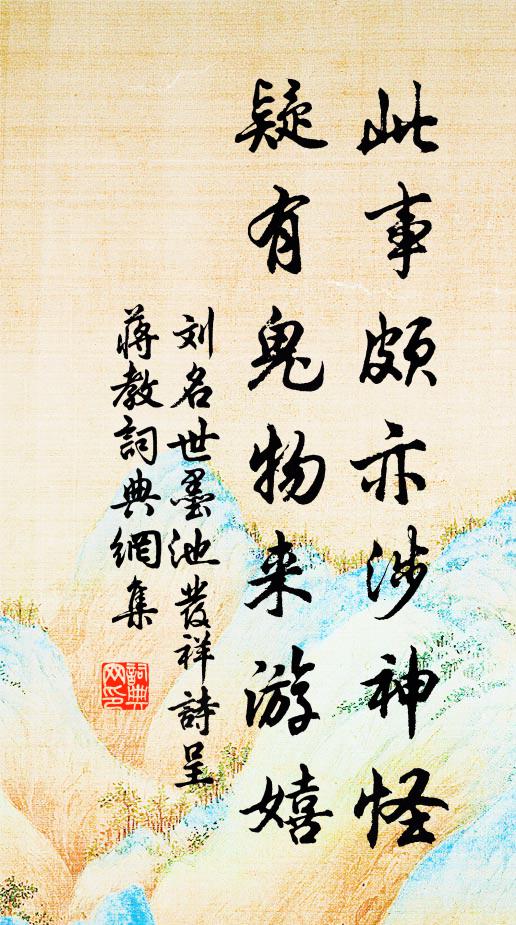 此事頗亦涉神怪
疑有鬼物来游嬉
刘名世墨池發祥詩呈
蔣教詞典網集
詞典网印